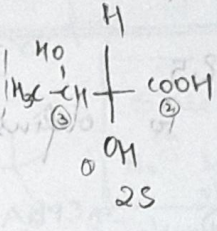 H
HO
H₃C-CH COOH
③ ②
① OH
2S